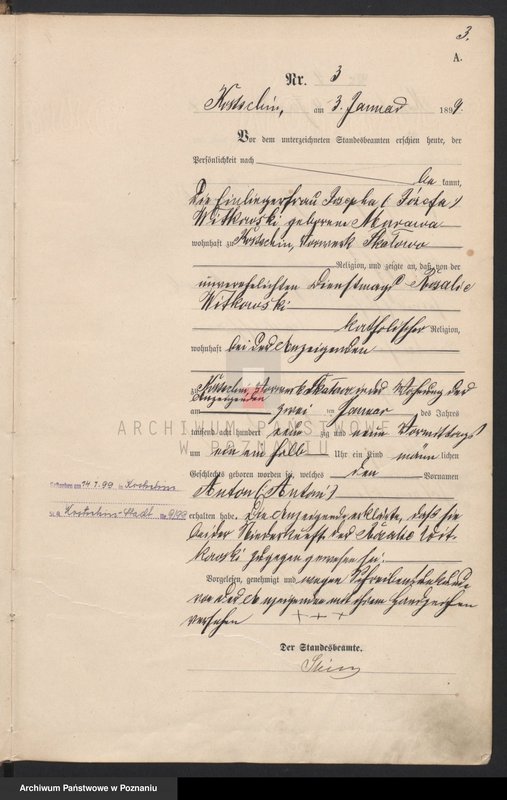 3.
A.
Nr. 3
Kostschin, am 3. Januar 1899.
Vor dem unterzeichneten Standesbeamten erschien heute, der
Persönlichkeit nach
be kannt,
die Einliegerfrau Josepha (Józefa)
Witkowski geborene
wohnhaft zu Kostschin, Vorwerk Skałowo
Religion, und zeigte an, daß von der
unverehelichten Dienstmagd Rosalie
Witkowski
katholischer Religion,
wohnhaft bei der Anzeigenden
zu Kostschin, Vorwerk Skałowo in der Wohnung der
Anzeigenden
am zwei ten Januar des Jahres
tausend acht hundert neun zig und neun Vormittags
um ein halb Uhr ein Kind männ lichen
Geschlechts geboren worden sei, welches den Vornamen
Anton (Antoni)
erhalten habe. Die Anzeigende erklärte, daß sie
bei der Niederkunft der Rosalie Wit-
kowski zugegen gewesen sei.
Vorgelesen, genehmigt und wegen Schreibensunkunde
von der Anzeigenden mit ihrem Handzeichen
versehen + + +
Der Standesbeamte.
Gestorben am 14.1.99 in Kostschin
St.A. Kostschin-Stadt Nr. 9/99
ARCHIWUM PAŃSTWOWE
W POZNANIU
Archiwum Państwowe w Poznaniu